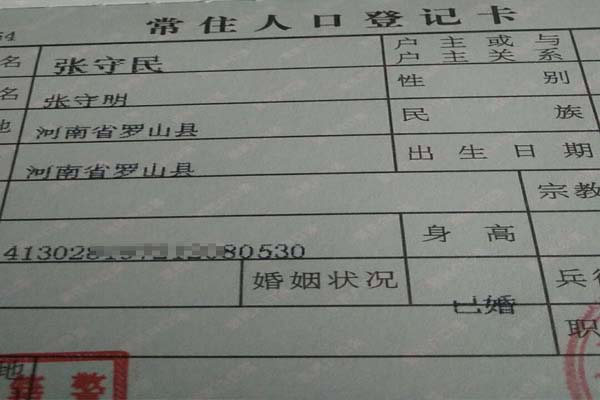 常住人口登记卡
54
名 张守民 户主或与
户主关系
名 张守明 性别
地 河南省罗山县 民族
河南省罗山县 出生日期
宗教
413028 80530 身高
婚姻状况 已婚 兵役
职
地
警